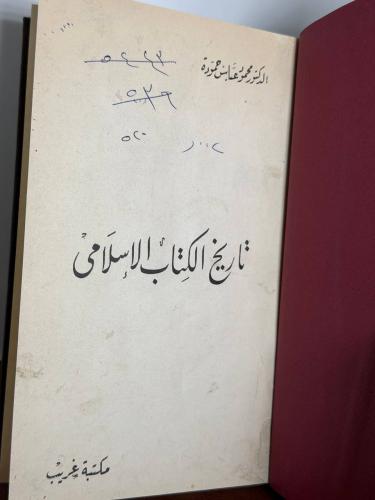 الدكتور محمود عباس حمودة
٥٤٢٣
٥٣٩
٥٢٠
تاريخ الكتاب الإسلامى
مكتبة غريب